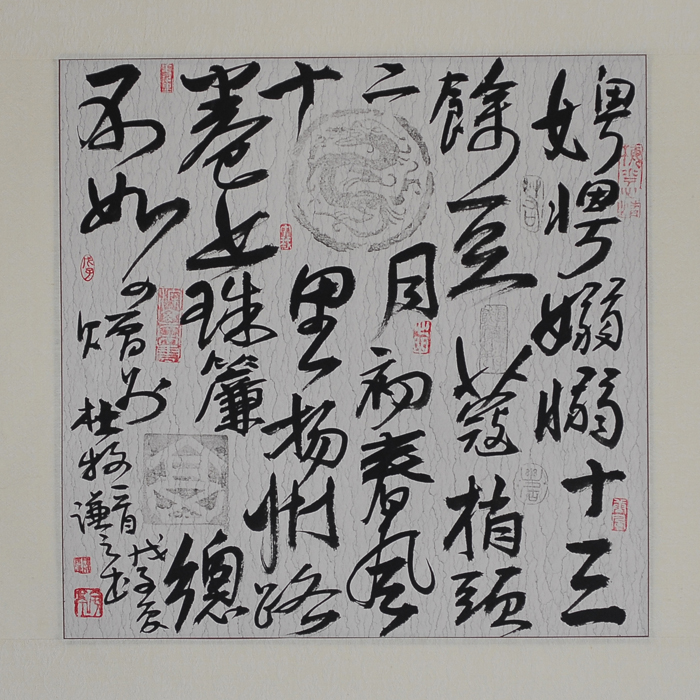 娉娉嫋嫋十三
餘豆蔻梢頭
二月初春風
十里揚州路
卷上珠簾總
不如
贈別
杜牧一首
戊子
謙之書